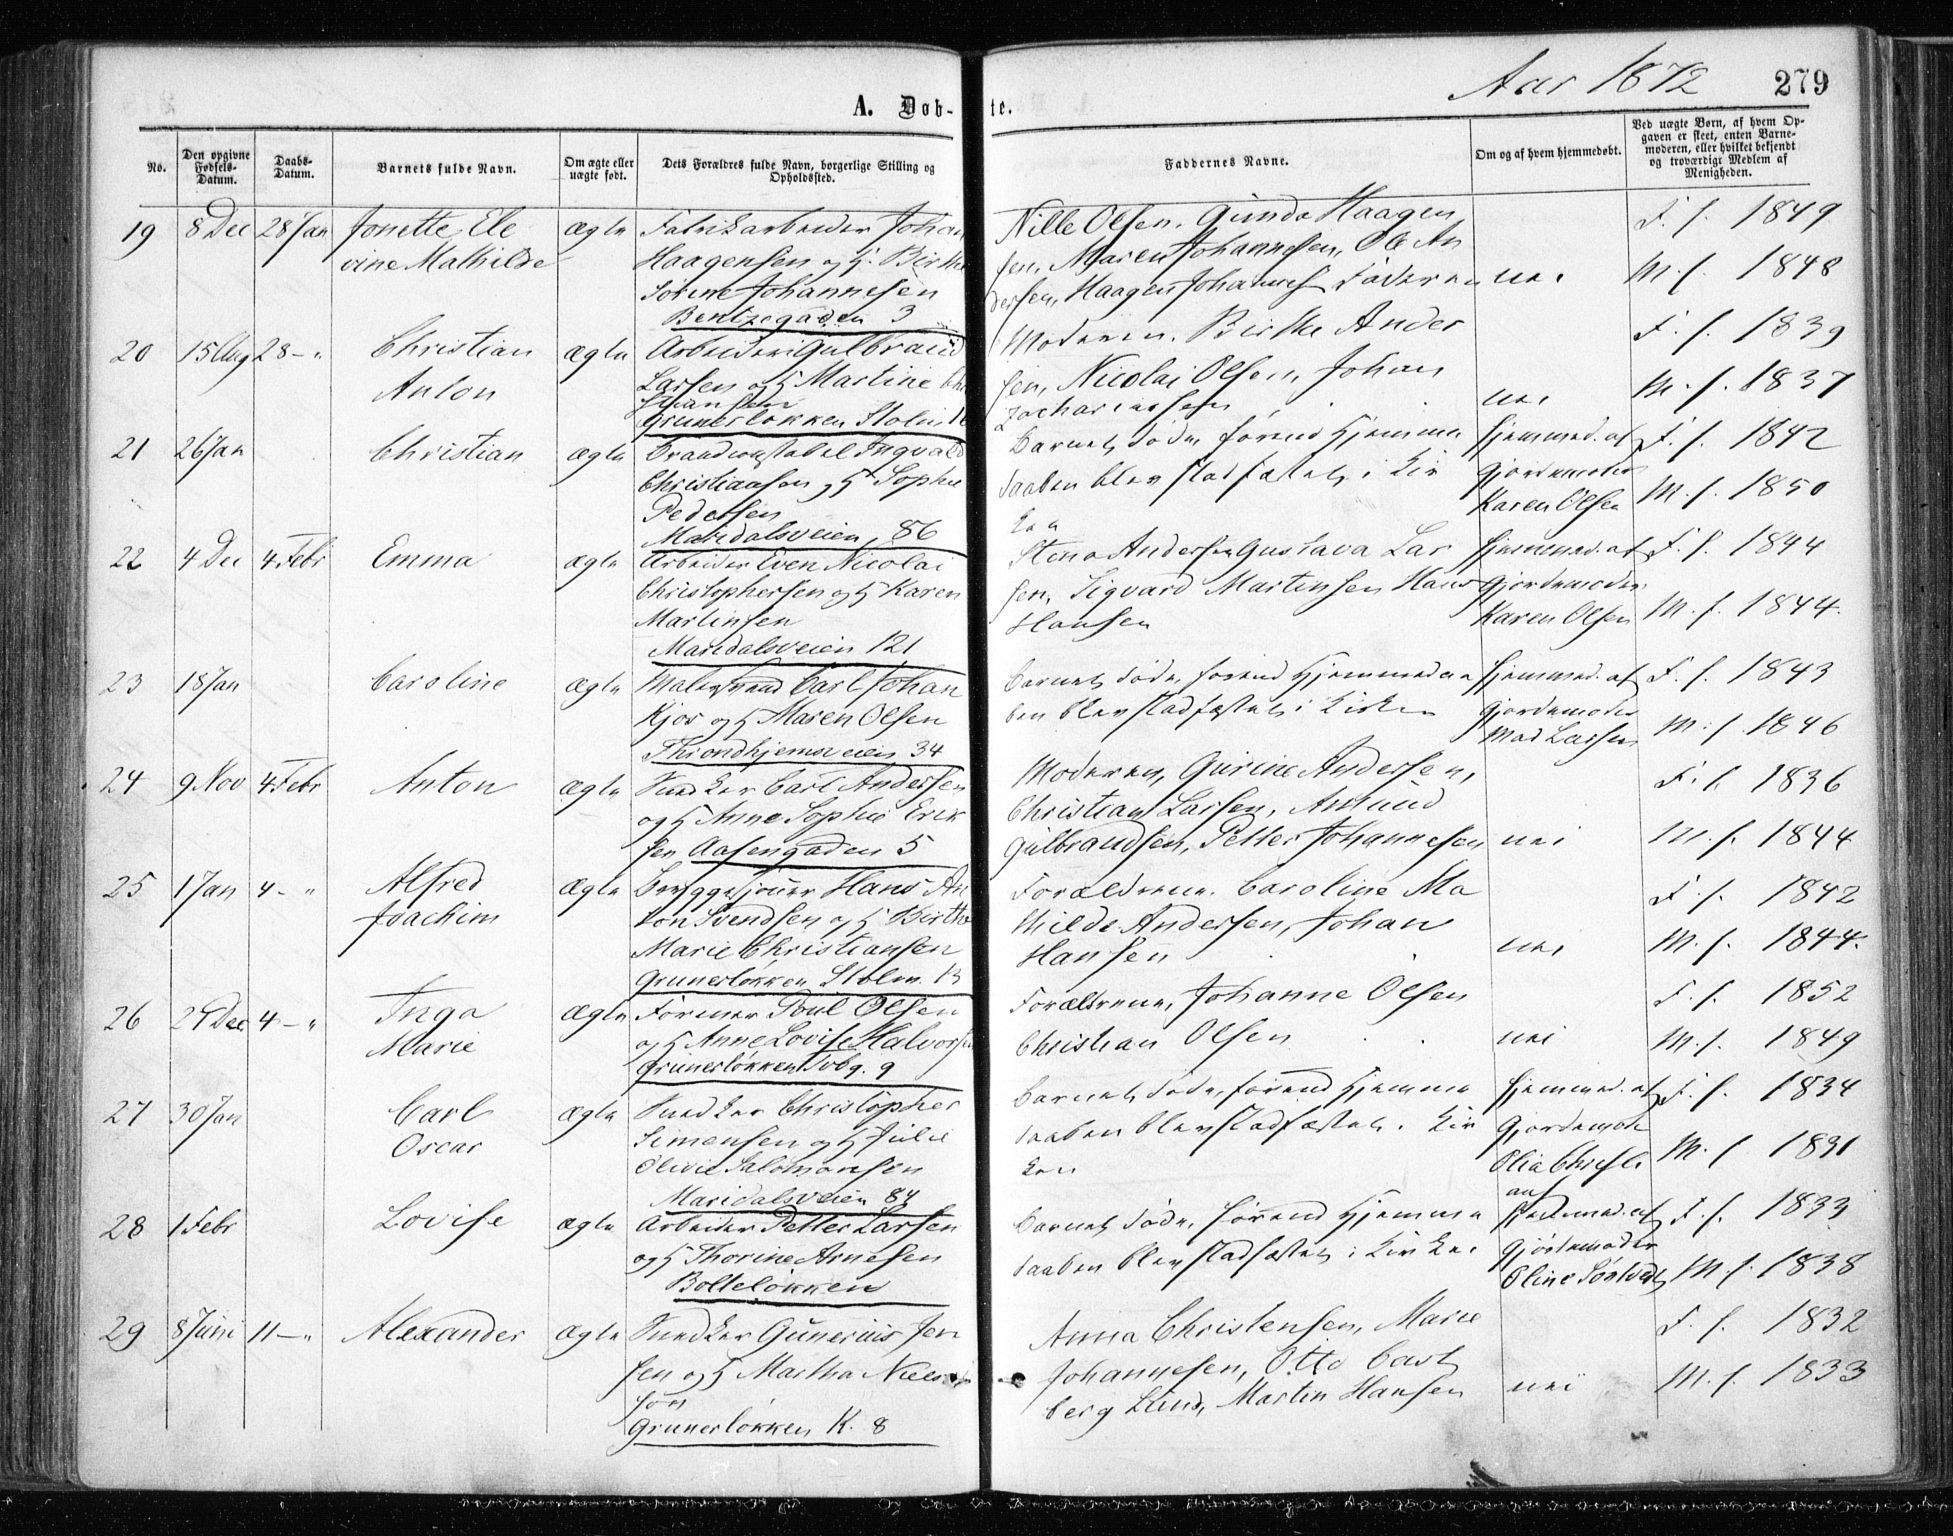 Aar 1872
279
A. Døb-
te.
No.
Den opgivne Fødsels-Datum.
Daabs-Datum.
Barnets fulde Navn.
Om ægte eller uægte født.
Dets Forældres fulde Navn, borgerlige Stilling og Opholdssted.
Faddernes Navne.
Om og af hvem hjemmedøbt.
Ved uægte Børn, af hvem Opgaven er skeet, enten Barnemoderen, eller hvilket bekjendt og troværdigt Medlem af Menigheden.
19 8 Dec 28 Jan Jonette Ele ægte Fabrikarbeider Johan Nille Olsen, Gunda Haagen F. f. 1849
vine Mathilde Haagensen og H. Birthe sen, Maren Johannesen, Ole An
Sørine Johannesen dersen, Haagen Johannes Faderen nei M. f. 1848
Bentzegaden 3
20 15 Aug 28 – " Christian ægte Arbeider Gulbrand Moderen, Birthe Ander F. f. 1839
Anton Larsen og H Martine Chri sen, Nicolai Olsen, Johan M. f. 1837
stiansen Zachariassen nei
Grünerløkken Holm 16
21 26 Jan Christian ægte Brandconstabel Ingvald Barnet døde førend Hjemme Hjemmed. af F. f. 1842
Christiansen og H Sophie daaben blev stadfæstet i Kir Gjordemoder
Pedersen ken Karen Olsen M. f. 1850
Maridalsveien 86
22 4 Dec 4 Febr Emma ægte Arbeider Even Nicolai Stena Andersen Gustava Lar Hjemmed. af F. f. 1844
Christophersen og H Karen sen, Sigvard Martinsen Hans Gjordemoder
Martinsen Hansen Karen Olsen M. f. 1844.
Maridalsveien 121
23 18 Jan Caroline ægte Malersvend Carl Johan Barnet døde førend Hjemmedaa Hjemmed. af F. f. 1843
Kjos og H Maren Olsen ben blev stadfæstet i Kirken Gjordemoder
Throndhjemsveien 34 Mad Larsen M. f. 1846
24 9 Nov 4 Febr Anton ægte Snedker Carl Andersen Moderen, Gurine Andersen, F. f. 1836
og H Anne Sophie Erik Christian Larsen, Amund
sen Aasengaden 5 Gulbrandsen, Petter Johannesen nei M. f. 1844
25 1 Jan 4 – " Alfred ægte Bryggesjouer Hans An Forældrene, Caroline Ma F. f. 1842
Joachim ton Svendsen og H Birthe thilde Andersen, Johan
Marie Christiansen Hansen nei M. f. 1844.
Grünerløkken Holm. 13
26 29 Dec 4 – " Inga ægte Former Poul Olsen Forældrene, Johanne Olsen F. f. 1852
Marie og H Anne Lovise Halvorsen Christian Olsen nei M. f. 1849
Grünerløkken Tvbg. 9
27 30 Jan Carl ægte Snedker Christopher Barnet døde, førend Hjemme Hjemmed. af F. f. 1834
Oscar Simensen og H Julie daaben blev stadfæstet i Kir Gjordemod
Olivie Salomonsen ken Olia Christi M. f. 1831
Maridalsveien 84 ans
28 1 Febr Lovise ægte Arbeider Petter Larsen Barnet døde, førend Hjemme Hjemmed. af F. f. 1833
og H Thorine Arnesen daaben blev stadfæstet i Kirken Gjordemoder
Bolteløkken Oline M. f. 1838
29 8 Juni 11 – " Alexander ægte Snedker Gunerius Jen Anna Christensen, Marie F. f. 1832
sen og H Martha Niels Johannesen, Otto Carl
søn berg Lund, Martin Hansen nei M. f. 1833
Grünerløkken K. 8